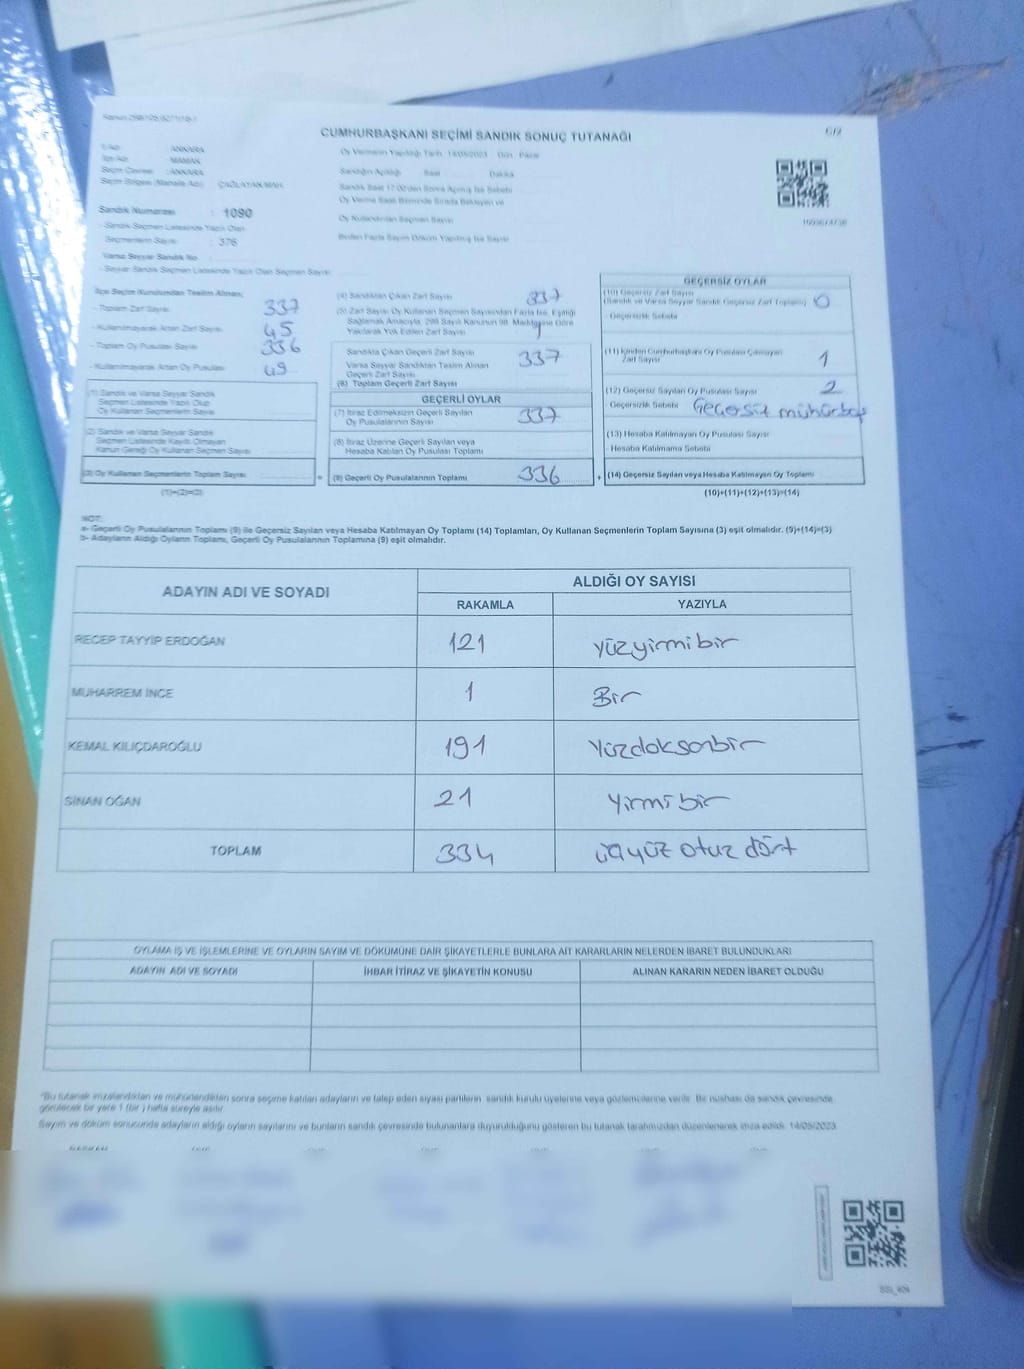 CUMHURBAŞKANI SEÇİMİ SANDIK SONUÇ TUTANAĞI
İl Adı : ANKARA
İlçe Adı : MAMAK
Seçim Çevresi : ANKARA
Seçim Bölgesi (Mahalle Adı) : ÇAĞLAYAN MAH.
Sandık Numarası : 1090
- Sandık Seçmen Listesinde Yazılı Olan
Seçmenlerin Sayısı : 376
Varsa Seyyar Sandık No
- Seyyar Sandık Seçmen Listesinde Yazılı Olan Seçmen Sayısı
Oy Vermenin Yapıldığı Tarih: 14/05/2023 Gün: Pazar
Sandığın Açıldığı Saat Dakika
Sandık Saat 17:00'den Sonra Açılmış İse Sebebi
Oy Verme Saati Bitiminde Sırada Bekleyen ve
Oy Kullandırılan Seçmen Sayısı
Birden Fazla Sayım Döküm Yapılmış İse Sayısı
İlçe Seçim Kurulundan Teslim Alınan;
- Toplam Zarf Sayısı 337
- Kullanılmayarak Artan Zarf Sayısı 45
- Toplam Oy Pusulası Sayısı 336
- Kullanılmayarak Artan Oy Pusulası 49
(1) Sandık ve Varsa Seyyar Sandık
Seçmen Listesinde Yazılı Olup
Oy Kullanan Seçmenlerin Sayısı
(2) Sandık ve Varsa Seyyar Sandık
Seçmen Listesinde Kayıtlı Olmayan
Kanun Gereği Oy Kullanan Seçmen Sayısı
(3) Oy Kullanan Seçmenlerin Toplam Sayısı
(1)+(2)=(3)
(4) Sandıktan Çıkan Zarf Sayısı 337
(5) Zarf Sayısı Oy Kullanan Seçmen Sayısından Fazla İse, Eşitliği
Sağlamak Amacıyla, 298 Sayılı Kanunun 98. Maddesine Göre
Yakılarak Yok Edilen Zarf Sayısı
Sandıkta Çıkan Geçerli Zarf Sayısı 337
Varsa Seyyar Sandıktan Teslim Alınan
Geçerli Zarf Sayısı
(6) Toplam Geçerli Zarf Sayısı
GEÇERLİ OYLAR
(7) İtiraz Edilmeksizin Geçerli Sayılan
Oy Pusulalarının Sayısı 337
(8) İtiraz Üzerine Geçerli Sayılan veya
Hesaba Katılan Oy Pusulası Toplamı
(9) Geçerli Oy Pusulalarının Toplamı 336
GEÇERSİZ OYLAR
(10) Geçersiz Zarf Sayısı
(Sandık ve Varsa Seyyar Sandık Geçersiz Zarf Toplamı) 0
- Geçersizlik Sebebi
(11) İçinden Cumhurbaşkanı Oy Pusulası Çıkmayan
Zarf Sayısı 1
(12) Geçersiz Sayılan Oy Pusulası Sayısı 2
Geçersizlik Sebebi Geçersiz mühürbaş
(13) Hesaba Katılmayan Oy Pusulası Sayısı
- Hesaba Katılmama Sebebi
(14) Geçersiz Sayılan veya Hesaba Katılmayan Oy Toplamı
(10)+(11)+(12)+(13)=(14)
NOT:
a- Geçerli Oy Pusulalarının Toplamı (9) ile Geçersiz Sayılan veya Hesaba Katılmayan Oy Toplamı (14) Toplamları, Oy Kullanan Seçmenlerin Toplam Sayısına (3) eşit olmalıdır. (9)+(14)=(3)
b- Adayların Aldığı Oyların Toplamı, Geçerli Oy Pusulalarının Toplamına (9) eşit olmalıdır.
ADAYIN ADI VE SOYADI ALDIĞI OY SAYISI
RAKAMLA YAZIYLA
RECEP TAYYİP ERDOĞAN 121 yüzyirmibir
MUHARREM İNCE 1 Bir
KEMAL KILIÇDAROĞLU 191 Yüzdoksanbir
SİNAN OĞAN 21 Yirmibir
TOPLAM 334 üçyüz otuz dört
OYLAMA İŞ VE İŞLEMLERİNE VE OYLARIN SAYIM VE DÖKÜMÜNE DAİR ŞİKAYETLERLE BUNLARA AİT KARARLARIN NELERDEN İBARET BULUNDUKLARI
ADAYIN ADI VE SOYADI İHBAR İTİRAZ VE ŞİKAYETİN KONUSU ALINAN KARARIN NEDEN İBARET OLDUĞU
"Bu tutanak imzalandıktan ve mühürlendikten sonra seçime katılan adayların ve talep eden siyasi partilerin sandık kurulu üyelerine veya gözlemcilerine verilir. Bir nüshası da sandık çevresinde
görülecek bir yere 1 (bir) hafta süreyle asılır.
Sayım ve döküm sonucunda adayların aldığı oyların sayılarını ve bunların sandık çevresinde bulunanlara duyurulduğunu gösteren bu tutanak tarafımızdan düzenlenerek imza edildi. 14/05/2023